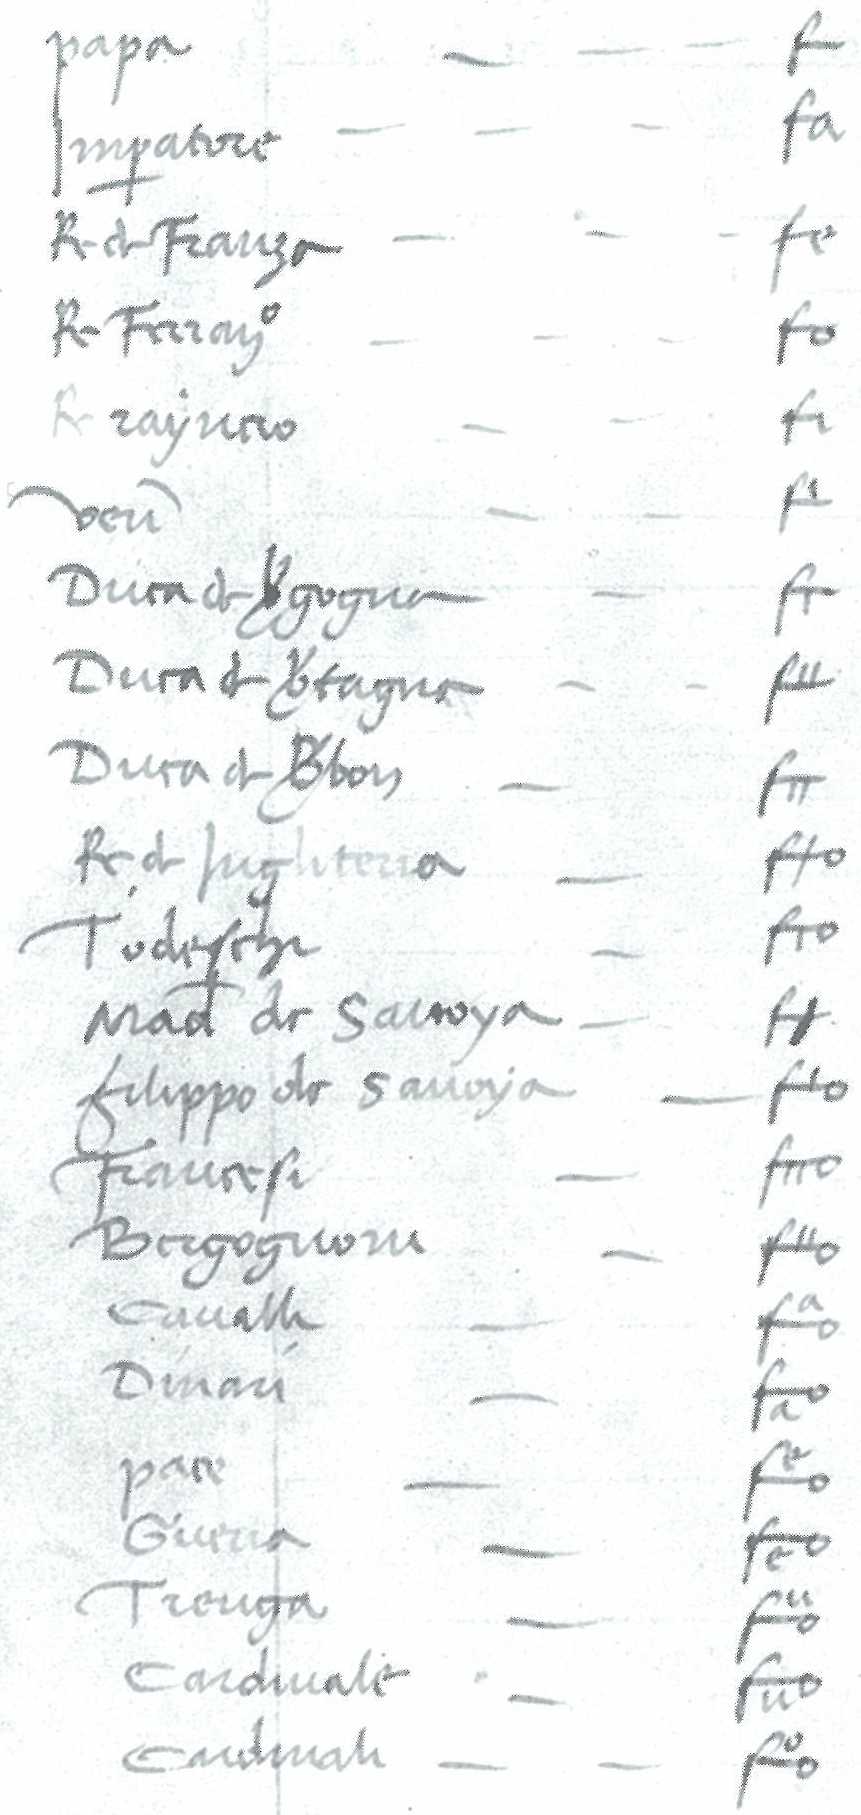 papa — — — f
Impatore — — — fa
R. de Franza — — — fe
R. Ferrando — — — fo
R. raynero — — fi
— — f
Duca de Bgogna — f
Duca de Bretagna — — f
Duca de Borbon — f
Re de Inghilterra — fo
Todeschi — fo
Mad de Savoya — f
filippo de Savoya — fo
Francesi — fo
Bergognoni — fo
Cavalli — fao
Dinari — fao
pace — feo
Guerra — feo
Treuga — fuo
Cardinale — fuo
Cardinali — — foo